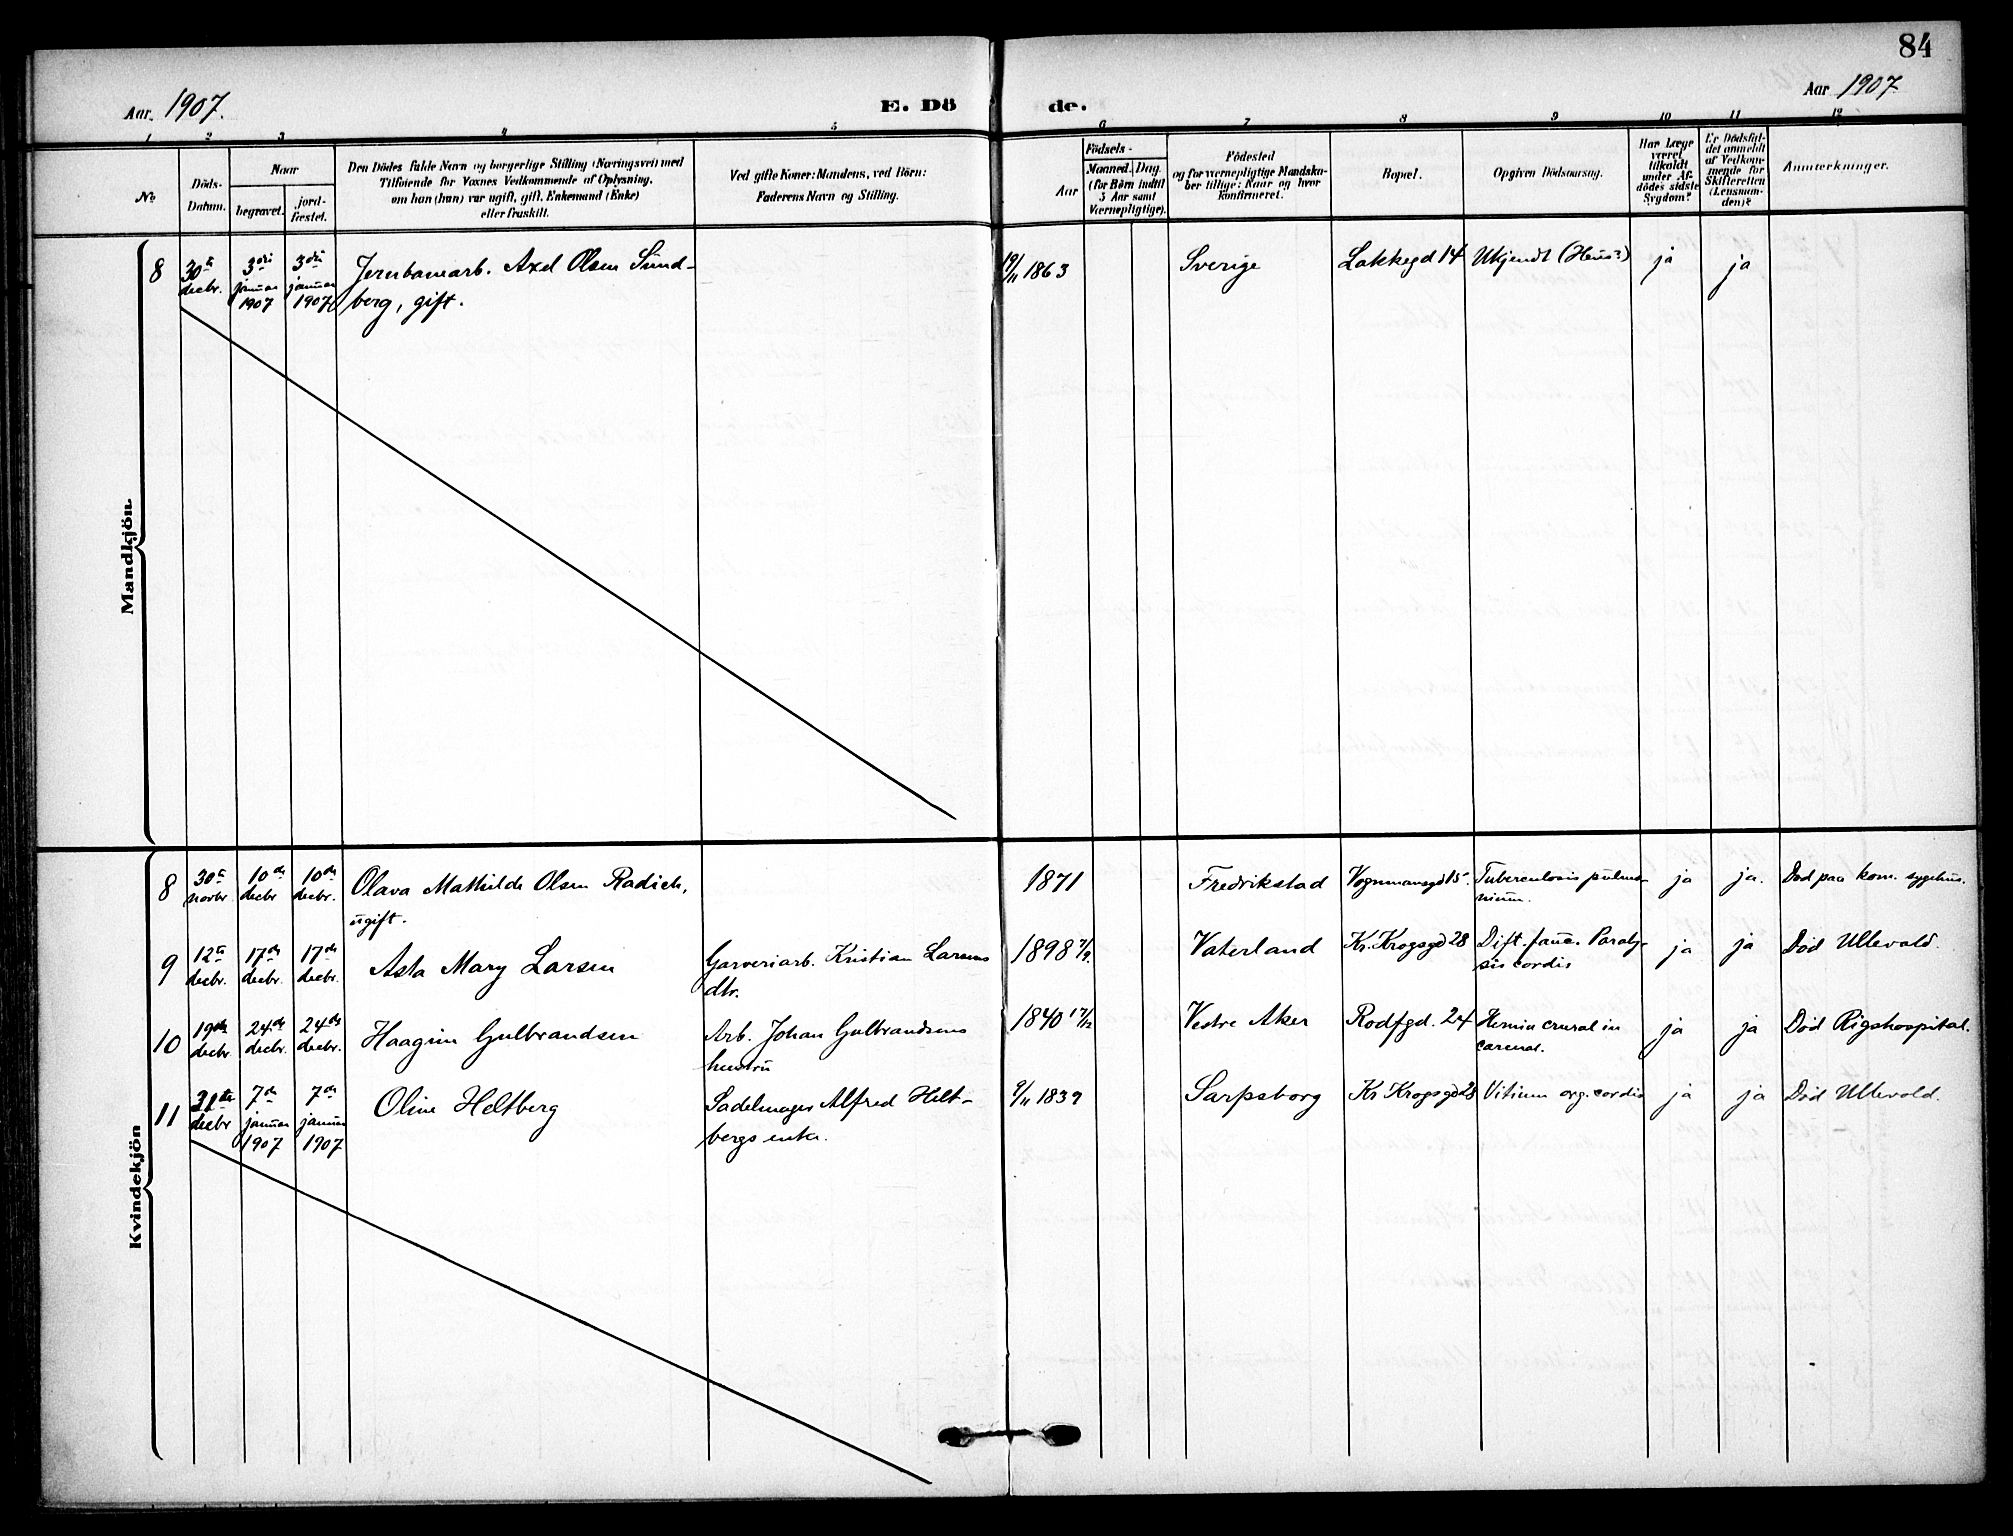 84
Aar 1907.
E. Dö de.
Aar 1907
1 2 3 4 5 6 7 8 9 10 11 12
No
Döds-Datum.
Naar
begravet.
jordfæstet.
Den Dödes fulde Navn og borgerlige Stilling (Næringsvei) med
Tilföiende for Voxnes Vedkommende af Oplysning,
om han (hun) var ugift, gift, Enkemand (Enke)
eller fraskilt.
Ved gifte Koner: Mandens, ved Börn:
Faderens Navn og Stilling.
Födsels-
Aar
Maaned. Dag
(for Börn indtil
5 Aar samt
Værnepligtige).
Födested
og for værnepligtige Mandska-
ber tillige: Naar og hvor
konfirmeret.
Bopæl.
Opgiven Dödsaarsag.
Har Læge
været
tilkaldt
under Af-
dödes sidste
Sygdom?
Er Dödsfal-
det anmeldt
af Vedkom-
mende for
Skifteretten
(Lensman-
den)?
Anmærkninger.
Mandkjön.
8 30te decbr. 3die januar 1907 3die januar 1907 Jernbanearb. Axel Olsen Sund- 19/11 1863 Sverige Lakkegd 14 Ukjendt ja ja
berg, gift.
Kvindekjön
8 30te novbr 10de decbr 10de decbr. Olava Mathilde Olsen Radich, 1871 Fredrikstad Vognmansgd 15 Tuberculosis pulmo- ja ja. Död paa kom. sygehus.
ugift. nium.
9 12te decbr. 17de decbr. 17de decbr. Asta Mary Larsen Garveriarb. Kristian Larsens 1898 Vaterland Kr. Krogsgd 28 Dift. fauc. Paraly- ja ja Död Ullevold.
dtr. sis cordis
10 19de decbr. 24de decbr. 24de decbr. Haagine Gulbrandsen Arb. Johan Gulbrandsens 1840 17/12 Vestre Aker Rodfgd. 24 Hernia crural in ja ja Död Rigshospital.
hustru carcerat.
11 31te decbr 7de januar 1907 7de januar 1907 Oline Heltberg Sadelmager Alfred Helt- 9/11 1839 Sarpsborg Kr Krogsgd 28 Vitium org. cordis ja ja Död Ullevold.
bergs enke.